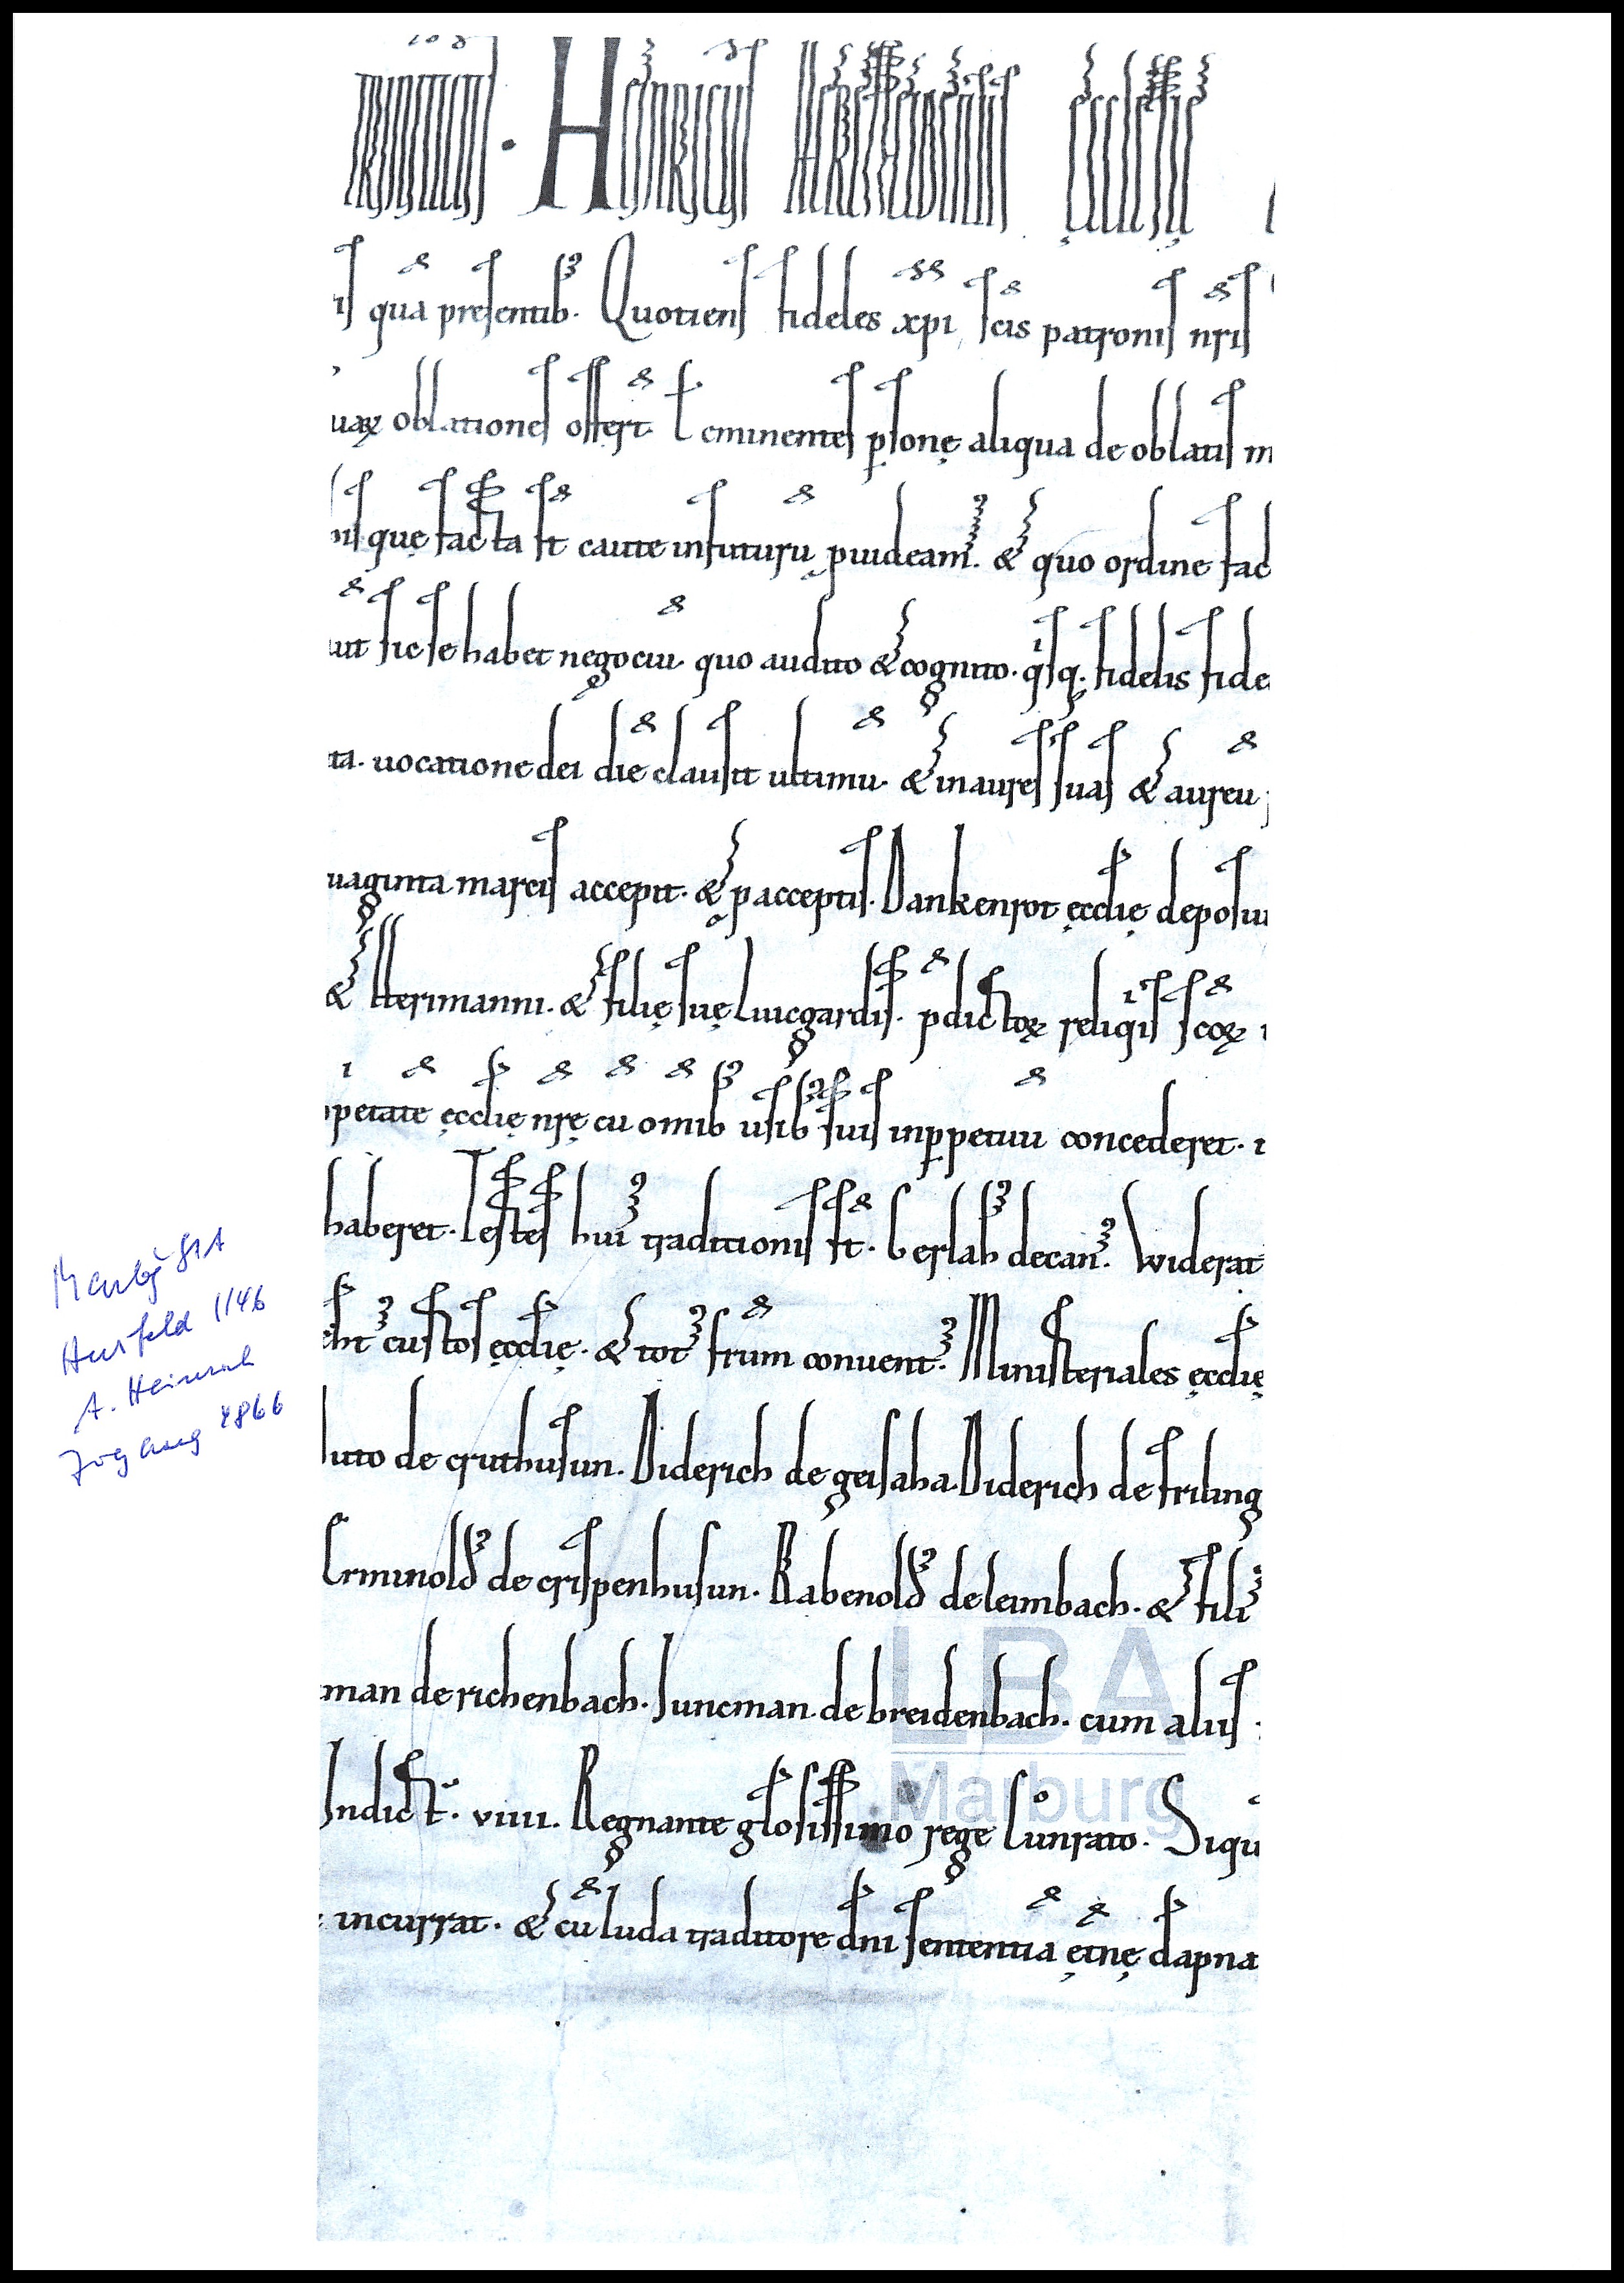 TRINITATIS. HEINRICUS HERSFELDENSIS ĘCCLESIĘ
is quā presentib⁹. Quotiens fideles xp̄i sc̄is patronis nr̄is
uaꝝ oblationes offerт̄ ł eminentes p̱sonę aliqua de oblatis
que facta st̄ caute in futurū p̱uideam⁹. & quo ordine fac
aut sic se habet negociū. quo audito & cognito. qⁱsq;. fidelis fide
ta. uocatione dei diē clausit ultimū. & inaures suas & aureū
uaginta marcis accepit. & p̱ acceptis. Dankenrot ęccłię deposui
& Herimanni. & filię suę Luicgardis. p̄dictoꝝ reliqⁱis sc̄oꝝ
petate ęccłię nr̄ę cū om̄ib⁹ usib⁹ suis inp̱petuū concederet.
haberet. Testes hui⁹ traditionis st̄. Gerlah⁹ decan⁹. Widerat
ebt⁹ custos ęccłię. & tot⁹ fr̄um conuent⁹. Ministeriales ęccłię
luto de cruthusun. Diderich de geisaha. Diderich de friling
Erminold⁹ de crispenhusun. Rabenold⁹ de leimbach. & fili⁹
man de richenbach. Juncman de breidenbach. cum aliis
Indict̄. viiii. Regnante gło̅sissimo rege Cůnrato. Siqu
incurrat. & cū Iuda traditore dn̄i sententia ęt̄nę dāpna
Marbg StA
Hersfeld 1146
A. Heinrich
Zugang 1866
LBA
Marburg